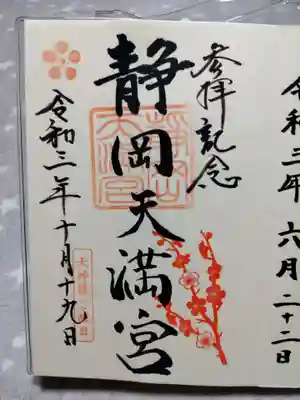 令和三年六月二十二日
参拝記念
静岡天満宮
静岡天満宮
令和三年十月十九日